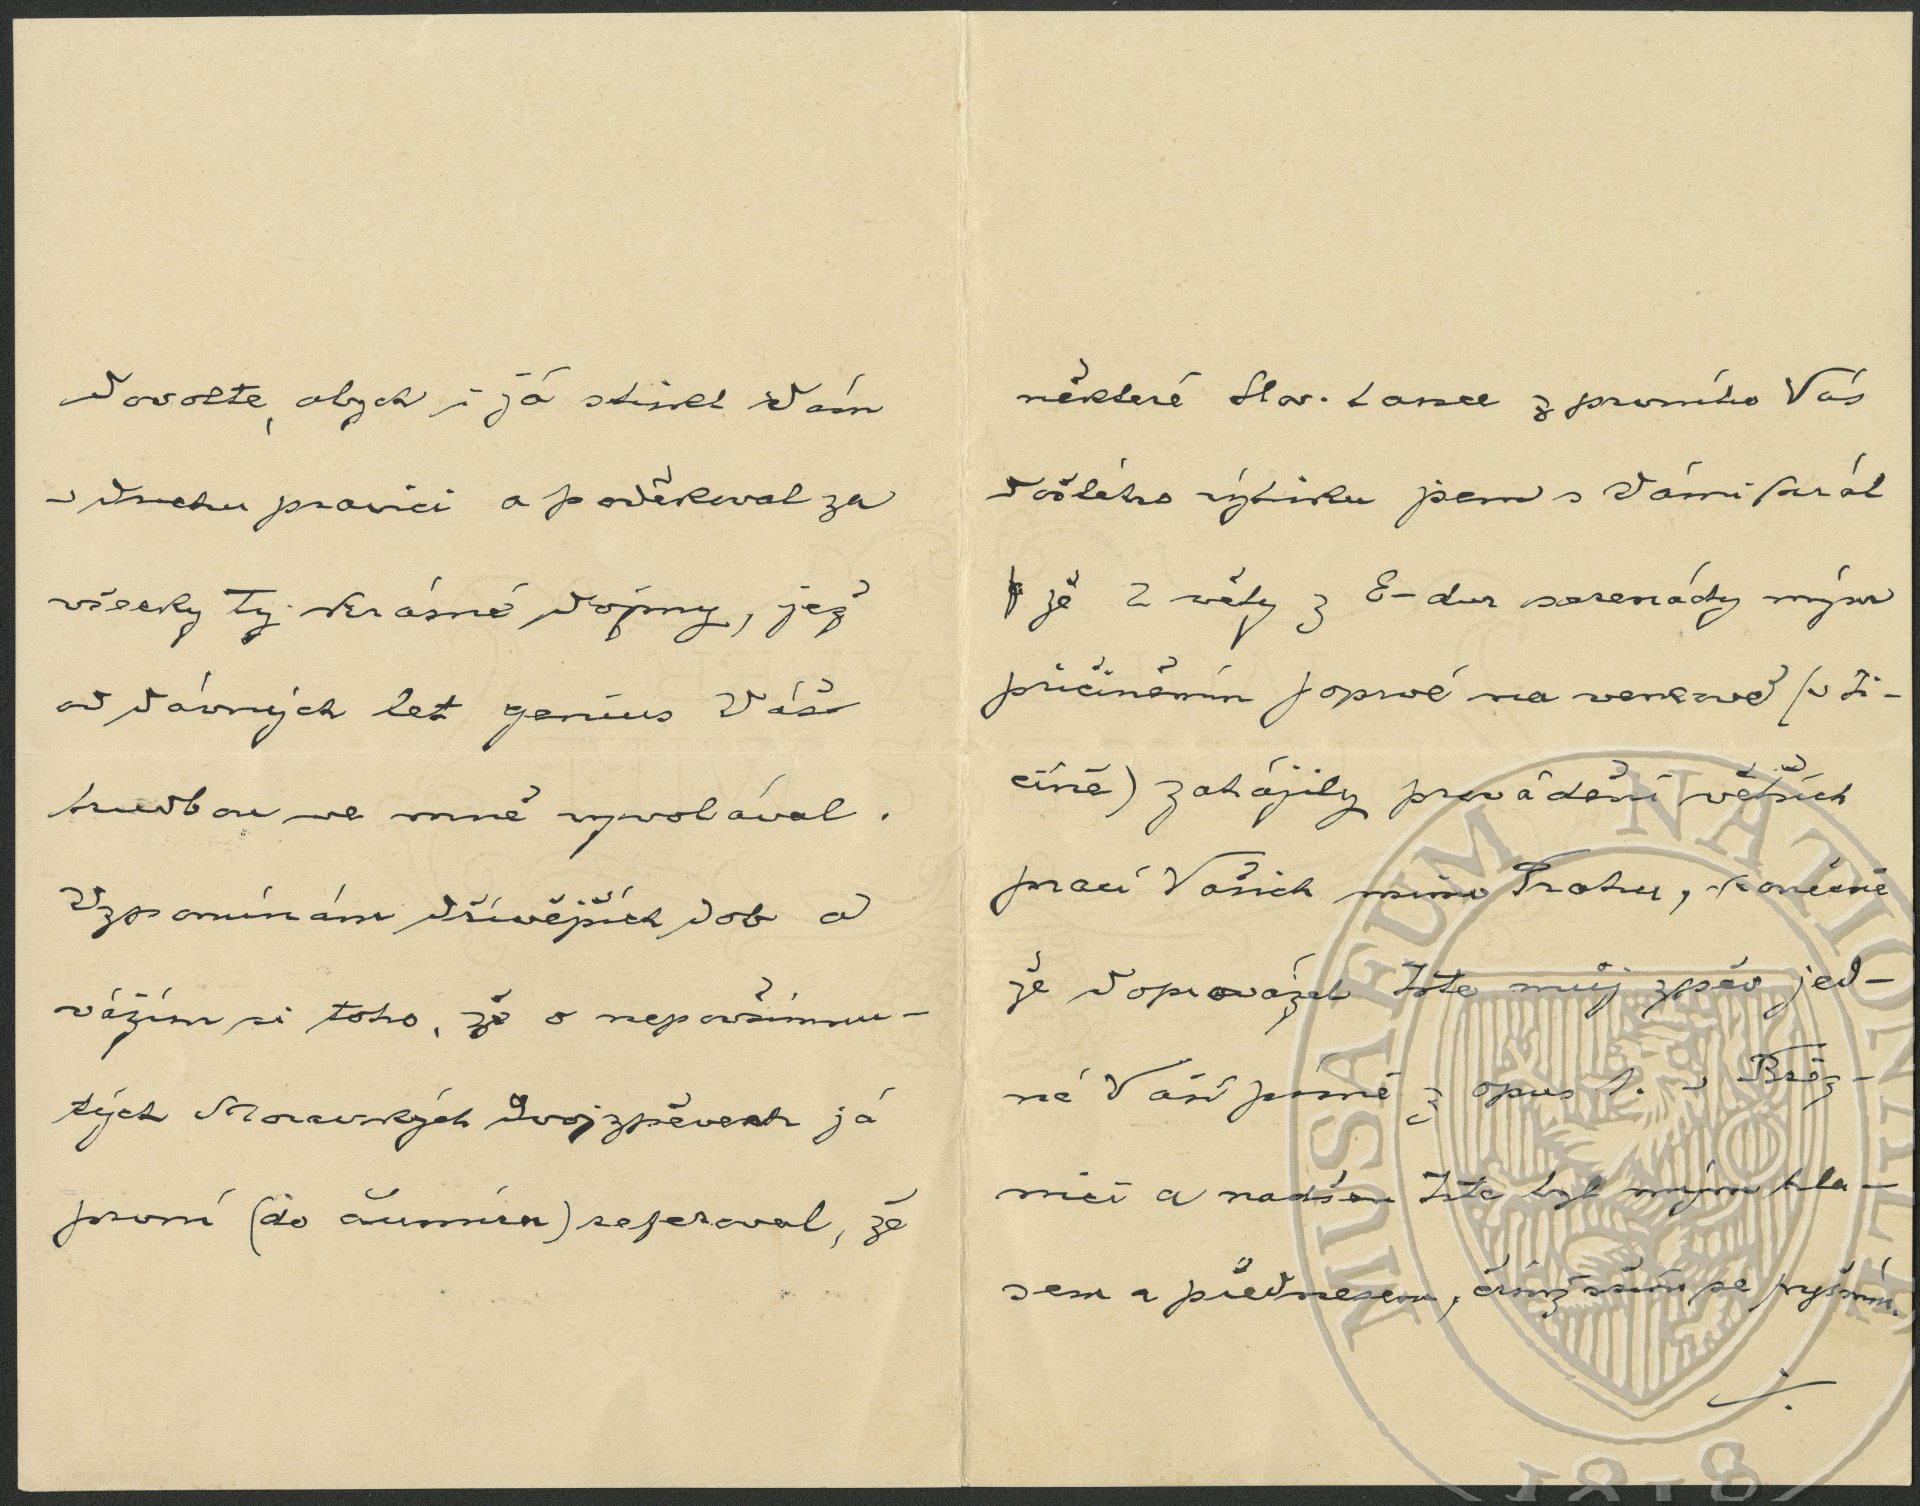 Dovolte, abych i já stiskl Vám
v duchu pravici a poděkoval za
všecky ty krásné dojmy, jež
od dávných let genius Váš
hudbou ve mně vyvolával.
Vzpomínám dřívějších dob a
vážím si toho, že o nepovšimnu-
tých Moravských dvojzpěvech já
první (do
) referoval, že
některé Slov. tance z prvního Vás
došlého výtisku jsem s Vámi hrál
že 2 věty z E-dur serenády mým
přičiněním poprvé na venkově (v Ji-
číně) zahájily provádění větších
prací Vašich mimo Prahu, konečně
že doprovázel jste můj zpěv jed-
né Vaší písně z opus 1. v Břez-
nici a nadšen jste byl mým hla-
sem a přednesem, čímž
se pyšním.
MUSAEUM NATIONALE
1818